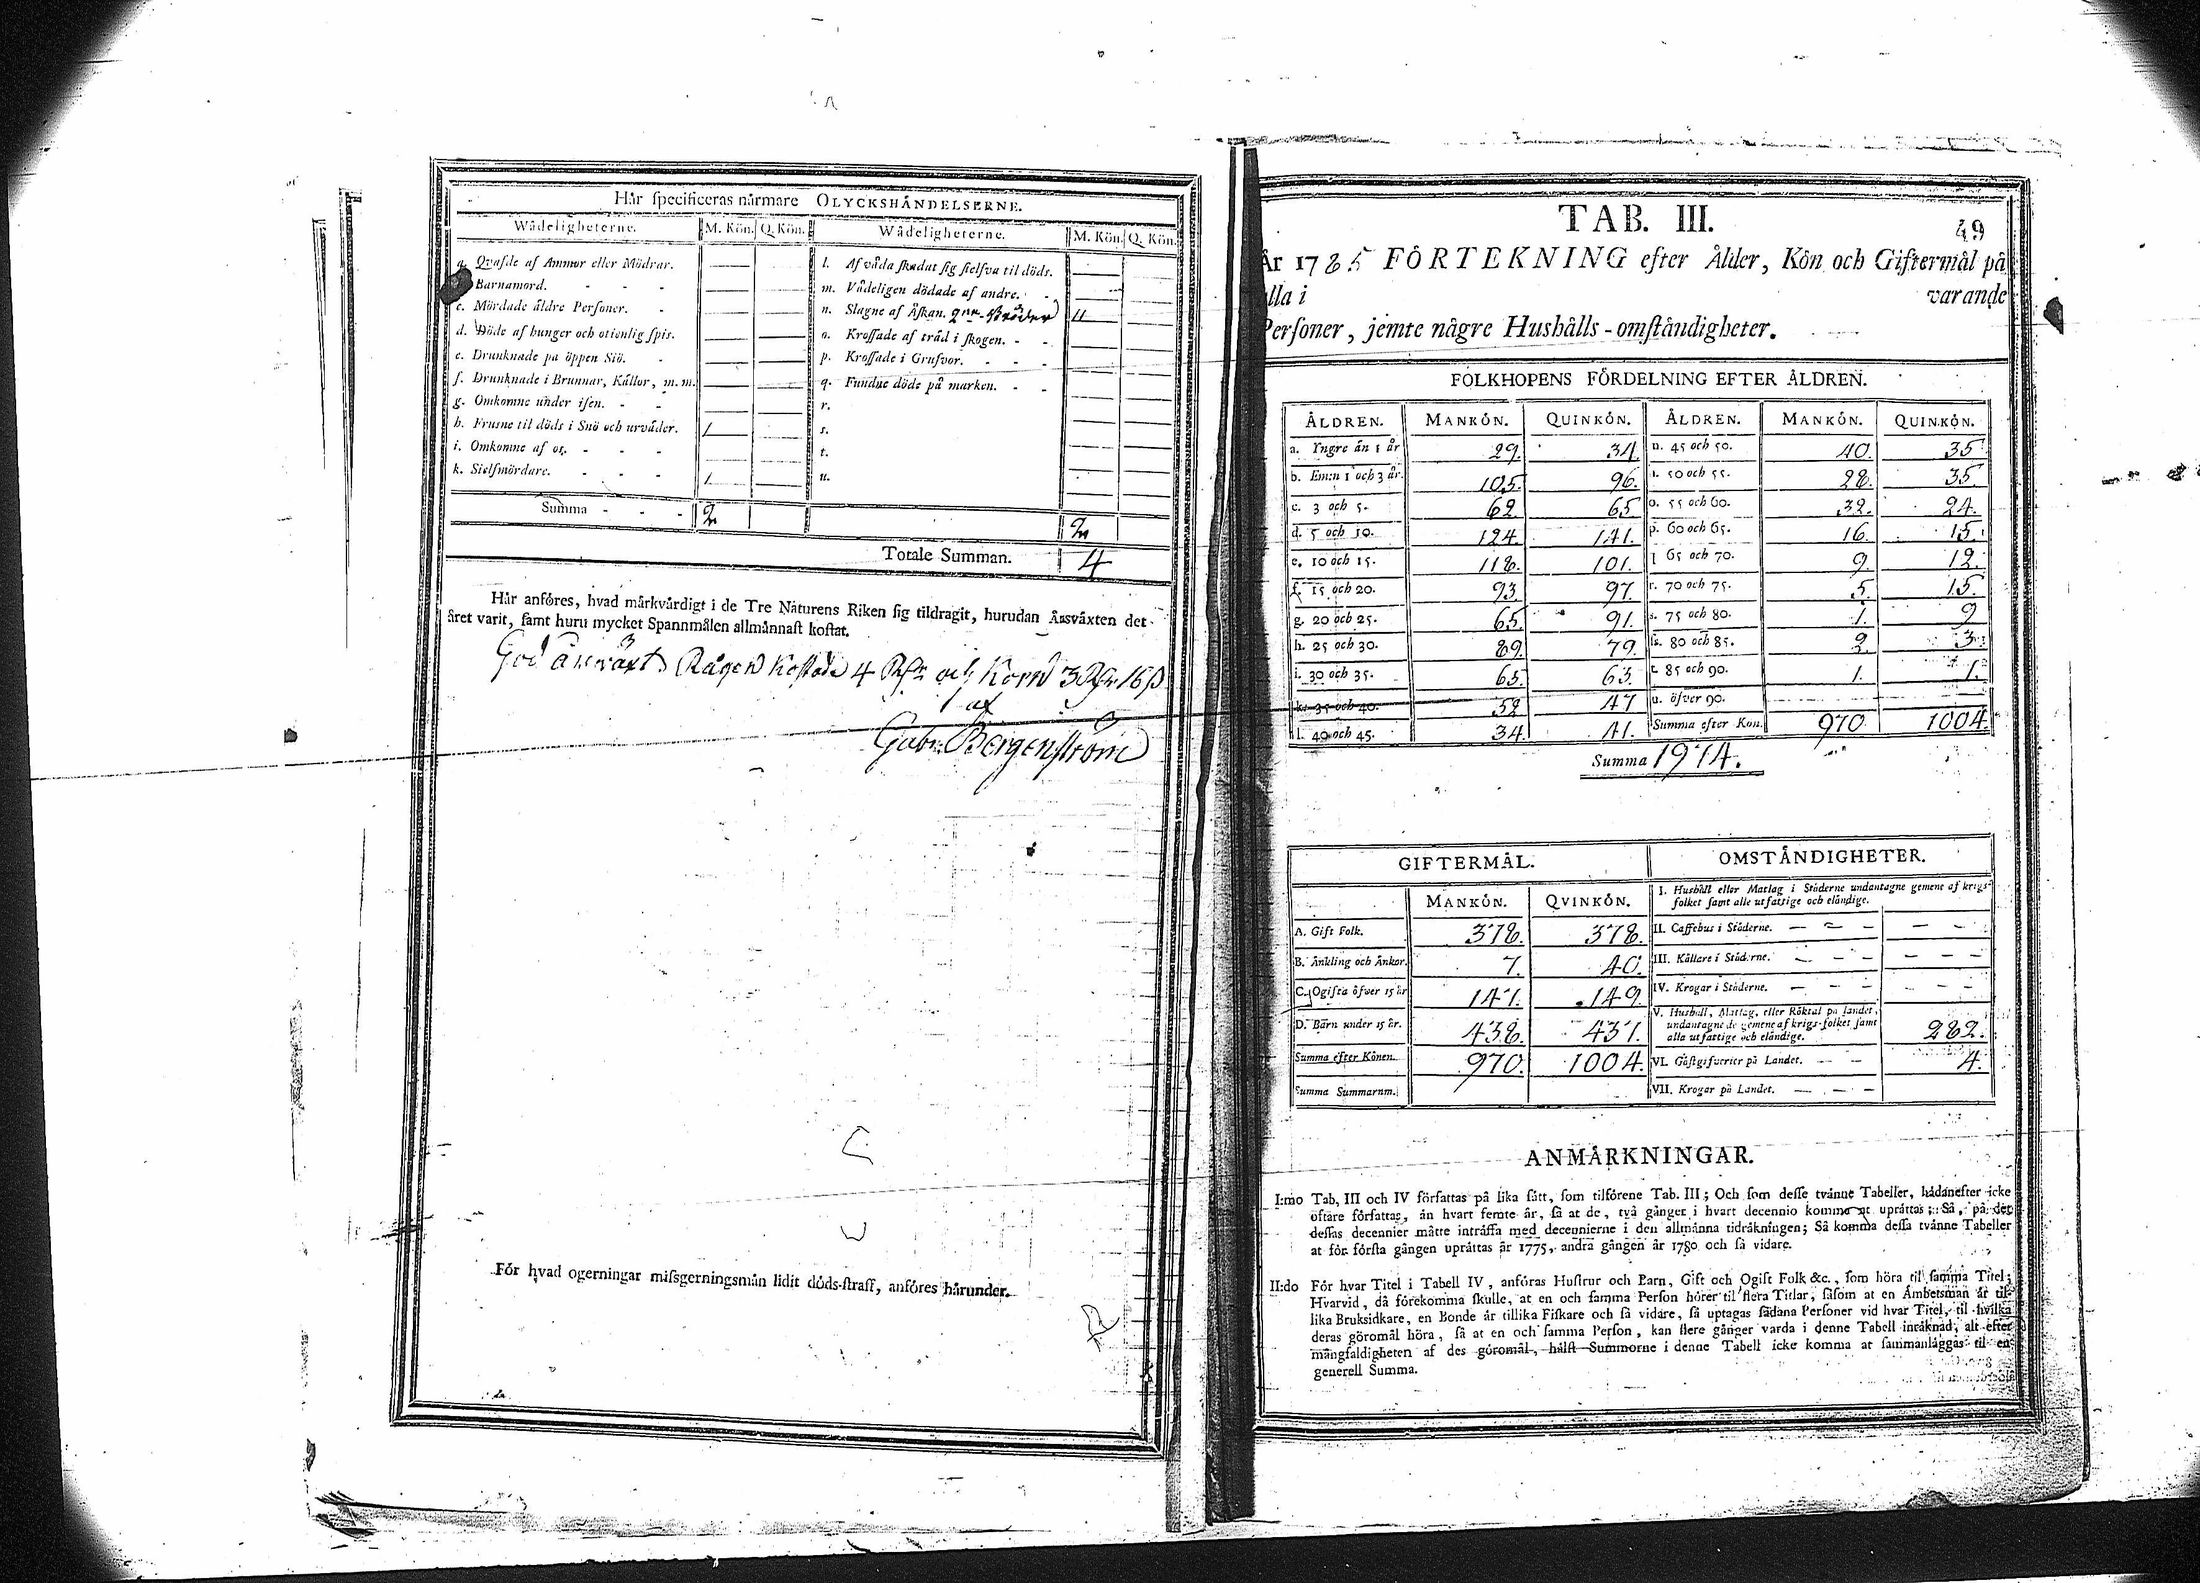 Hår specificeras nårmare OLYCKSHÅNDELSERNE.
Wådeligheterne. M. Kön. Q. Kön. Wådeligheterne. M. Kön. Q. Kön.
a. Qvafde af Ammor eller Mödrar. l. Af våda skadat sig sielfva til döds.
Barnamord. m. Vådeligen dödade af andre.
c. Mördade äldre Personer. n. Slagne af Åskan. 2ne Bröder 11
d. Döde af hunger och otienlig spis. o. Krossade af träd i skogen.
e. Drunknade på öppen Siö. p. Krossade i Grufvor.
f. Drunknade i Brunnar, Källor, m. m. q. Fundne döde på marken.
g. Omkomne under isen. r.
h. Frusne til döds i Snö och urväder. 1 s.
i. Omkomne af os. t.
k. Sielfmördare. 1. u.
Summa 2 2
Totale Summan. 4
Hår anföres, hvad mårkvårdigt i de Tre Naturens Riken sig tildragit, hurudan Årsvåxten det
året varit, samt huru mycket Spannmålen allmånnast kostat.
God årswäxt. Rågen kostade 4 Rdr och Korn 3 Rdr 16 ß
af
Gabr. Bergenström
För hvad ogerningar missgerningsmån lidit döds-straff, anföres hårunder.
TAB. III. 49
År 1785 FÖRTEKNING efter Ålder, Kön och Giftermål på
alla i varande
Personer, jemte någre Hushålls-omståndigheter.
FOLKHOPENS FÖRDELNING EFTER ÅLDREN.
ÅLDREN. MANKÖN. QUINKÖN. ÅLDREN. MANKÖN. QUINKÖN.
a. Yngre än 1 år 29. 34. n. 45 och 50. 40. 35.
b. Em:n 1 och 3 år. 105. 96. 50 och 55. 28. 35.
c. 3 och 5. 62. 65 o. 55 och 60. 32. 24.
d. 5 och 10. 124. 141. p. 60 och 65. 16. 15.
e. 10 och 15. 118. 101. 65 och 70. 9. 12.
f. 15 och 20. 93. 97. r. 70 och 75. 5. 15.
g. 20 och 25. 65. 91. s. 75 och 80. 1. 9
h. 25 och 30. 89. 79. ss. 80 och 85. 2. 3.
i. 30 och 35. 65. 63. t. 85 och 90. 1. 1.
k. 35 och 40. 52. 47 u. öfver 90.
l. 40 och 45. 34. 41. Summa efter Kön. 970 1004.
Summa 1974.
GIFTERMÅL. OMSTÅNDIGHETER.
MANKÖN. QVINKÖN. I. Hushåll eller Matlag i Städerne undantagne gemene af krigs-
folket samt alle utfattige och eländige.
A. Gift Folk. 378. 378. II. Caffehus i Städerne.
B. Änkling och Änkor. 7. 40. III. Källare i Städerne.
C. Ogifta öfver 15 år 147. 149. IV. Krogar i Städerne.
D. Barn under 15 år. 438. 437. V. Hushåll, Matlag, eller Röktal på landet,
undantagne de gemene af krigs-folket samt
alla utfattige och eländige. 282.
Summa efter Könen. 970. 1004. VI. Gästgifverier på Landet. 4.
Summa Summarum. VII. Krogar på Landet.
ANMÅRKNINGAR.
I:mo Tab. III och IV författas på lika sått, som tilförene Tab. III; Och som desse tvånne Tabeller, hådanefter icke
oftare författas, ån hvart femte år, så at de, två gånger i hvart decennio komma at upråttas; Så, på det
dessas decennier måtte intråffa med decennierne i den allmånna tidråkningen; Så komma dessa tvånne Tabeller
at för första gången upråttas år 1775, andra gången år 1780 och så vidare.
II:do För hvar Titel i Tabell IV, anföras Hustrur och Barn, Gift och Ogift Folk &c., som höra til samma Titel;
Hvarvid, då förekomma skulle, at en och samma Person hörer til flera Titlar, såsom at en Åmbetsman år til-
lika Bruksidkare, en Bonde år tillika Fiskare och så vidare, så uptagas sådana Personer vid hvar Titel, til hvilka
deras göromål höra, så at en och samma Person, kan flere gånger varda i denne Tabell inråknad, alt efter
mångfaldigheten af des göromål, hålst Summorne i denne Tabell icke komma at sammanläggas til en
generell Summa.